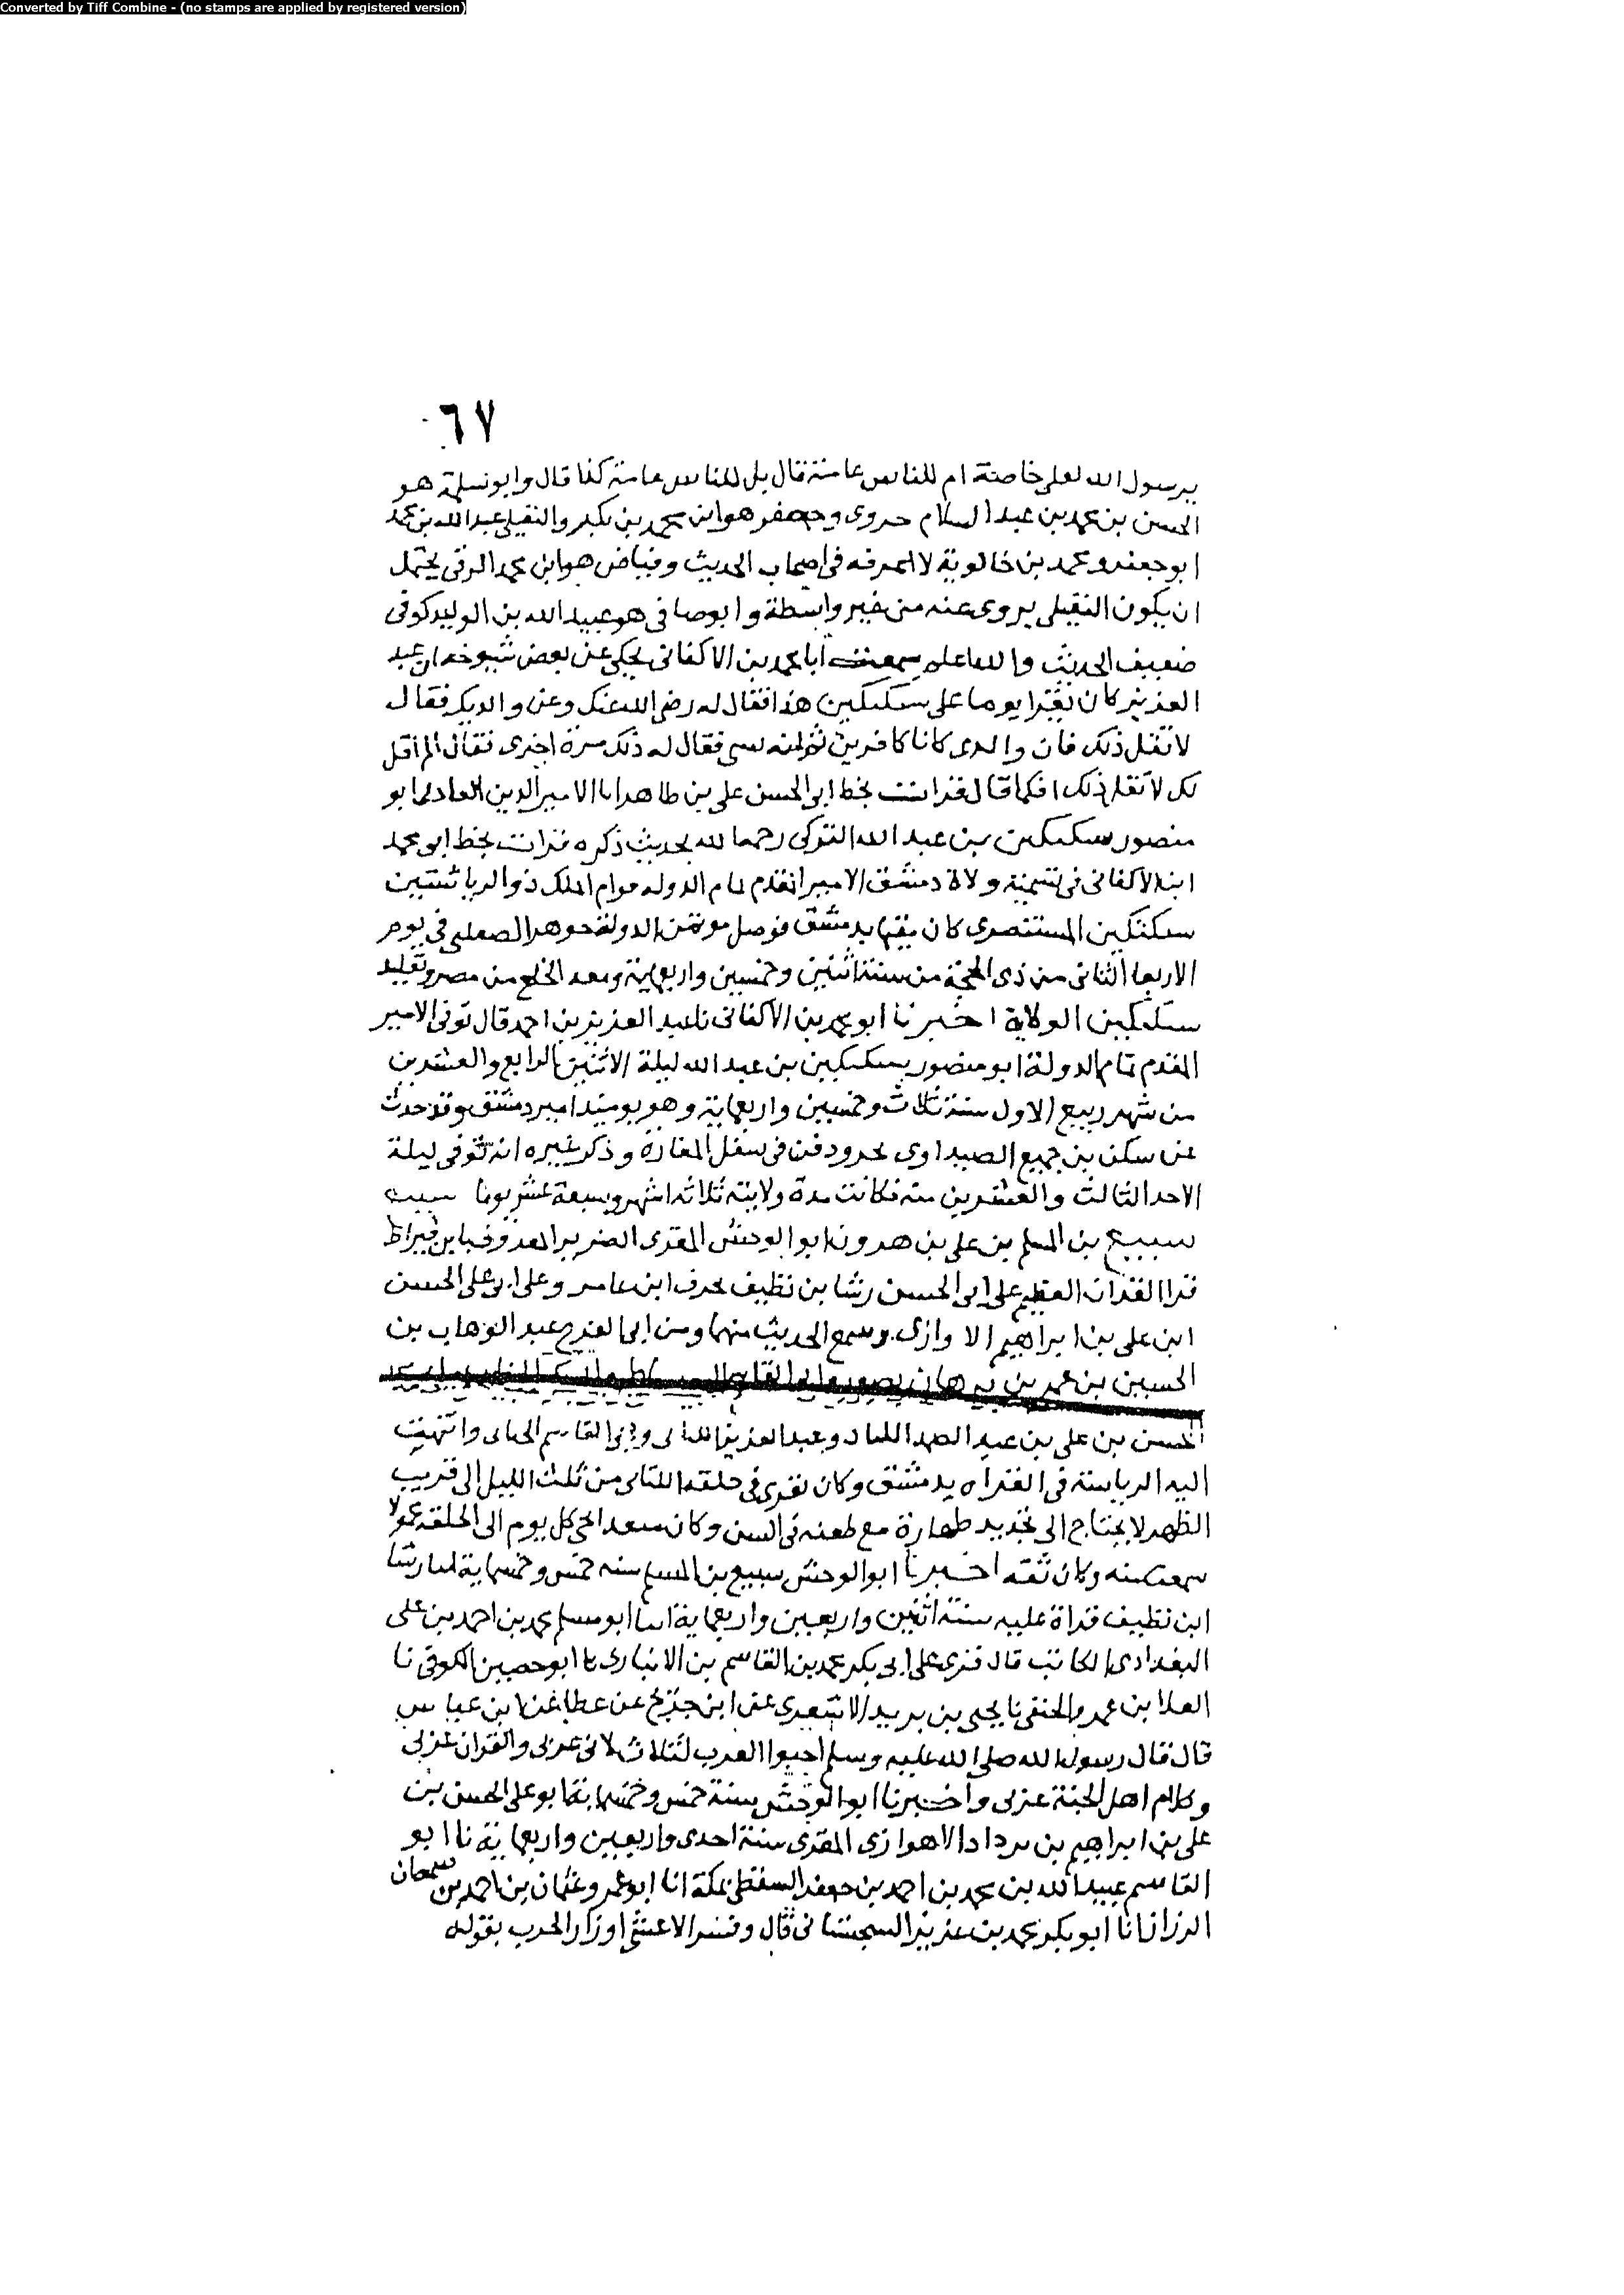 Converted by Tiff Combine - (no stamps are applied by registered version)
٦٧
يرسول الله لعلي خاصة ام للناس عامة قال بل للناس عامة كذا قال وابو نسلمة هو
الحسن بن محمد بن عبد السلام حروى وجعفر هو ابن محمد بن بكير والنفيلي عبد الله بن محمد
ابو جعفر ومحمد بن خالوية لا اعرفه فى اصحاب الحديث وفياض هو ابن محمد الرقى يحتمل
ان يكون النفيلى يروى عنه من غير واسطة وابو صافى هو عبيد الله بن الوليد كوفى
ضعيف الحديث والله اعلم سمعت ابا محمد بن الاكفانى يحكى عن بعض شيوخه ان عبد
العزيز كان يقرا يوما على سبكتكين هذا فقال له رضى الله عنك وعن والديك فقال
لا تقل ذلك فان والدى كانا كافرين ثم انه نسى فقال له ذلك مرة اخرى فقال الم اقل
لك لا تقل ذلك او كما قال قرات بخط ابى الحسن على بن طاهر انا الامير الدين العادل ابو
منصور سبكتكين بن عبد الله التركى رحمه الله بحديث ذكره قرات بخط ابى محمد
ابن الاكفانى فى تسمية ولاة دمشق الامير المقدم تمام الدوله قوام الملك ذو الرياستين
سبكتكين المستنصرى كان مقيما بدمشق فوصل موتمن الدولة جوهر الصقلبى فى يوم
الاربعا الثانى من ذى الحجة من سنة اثنين وخمسين واربعماية ومعه الخلع من مصر وتقليد
سبكتكين الولاية اخبرنا ابو محمد بن الاكفانى نا عبد العزيز بن احمد قال توفى الامير
المقدم تمام الدولة ابو منصور سبكتكين بن عبد الله ليلة الاثنين الرابع والعشرين
من شهر ربيع الاول سنة ثلاث وخمسين واربعماية وهو يوميذ امير دمشق وقد حدث
عن سكن بن جميع الصيداوى ودفن فى سفل المغارة وذكر غيره انه توفى ليلة
الاحد الثالث والعشرين منه فكانت مدة ولايته ثلاثه اشهر وسبعة عشر يوما سبيع
سبيع بن المسلم بن على بن هرون ابو الوحش المقرى الضرير المعروف بابن قيراط
قرا القران العظيم على ابى الحسن رشا بن نظيف بحرف ابن عامر وعلى ابى على الحسن
ابن على بن ابراهيم الاوازى وسمع الحديث منهما ومن ابى الفرج عبد الوهاب بن
الحسين بن عمر بن برهان بصور وابى القاسم
الحسن بن على بن عبد الصمد اللباد وعبد العزيز الكتانى وابى القاسم الحنائى وانتهت
اليه الرياسة فى القراه بدمشق وكان يقرى فى حلقه الكتانى من ثلث الليل الى قريب
الظهر لا يحتاج الى تجديد طهارة مع طعنه فى السن وكان مقعدا يجى كل يوم الى الحلقه محمولا
سمعت منه وكان ثقه اخبرنا ابو الوحش سبيع بن المسلم سنه خمس وخمسماية انا رشا
ابن نظيف قراة عليه سنة اثنين واربعين واربعماية انا ابو مسلم محمد بن احمد بن على
البغدادى الكاتب قال قرى على ابى بكر محمد بن القاسم بن الانبارى نا ابو حصين الكوفى نا
العلا بن عمرو الحنفى نا يحيى بن بريد الاشعرى عن ابن جريج عن عطا عن ابن عباس
قال قال رسول الله صلى الله عليه وسلم احبوا العرب لثلاث لانى عربى والقران عربى
وكلام اهل الجنة عربى واخبرنا ابو الوحش سنة خمس وخمسماية نا ابو على الحسن بن
على بن ابراهيم بن يرداد الاهوازى المقرى سنة احدى واربعين واربعماية نا ابو
القاسم عبيد الله بن محمد بن احمد بن جعفر السقطى بمكة انا ابو عمرو عثمان بن احمد بن سمعان
الرزاز انا ابو بكر محمد بن عزيز السجستانى قال وفسر الاعشى اوزار الحرب بقوله